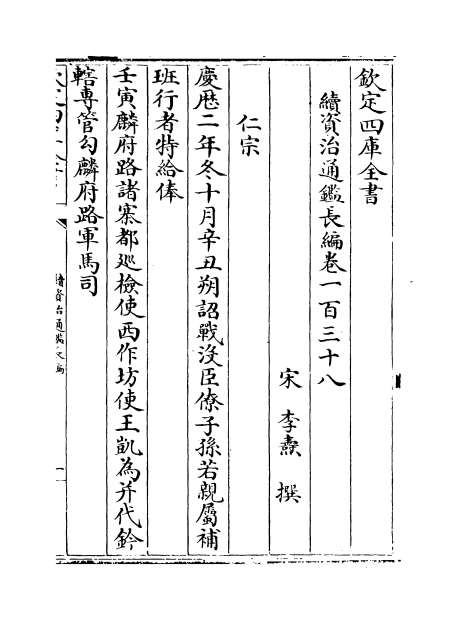 欽定四庫全書
續資治通鑑長編卷一百三十八
宋 李燾 撰
仁宗
慶歴二年冬十月辛丑朔詔戰沒臣僚子孫若親屬補
班行者特給俸
壬寅麟府路諸寨都廵檢使西作坊使王凱為并代鈐
轄專管勾麟府路軍馬司
續資治通鑑長編
一